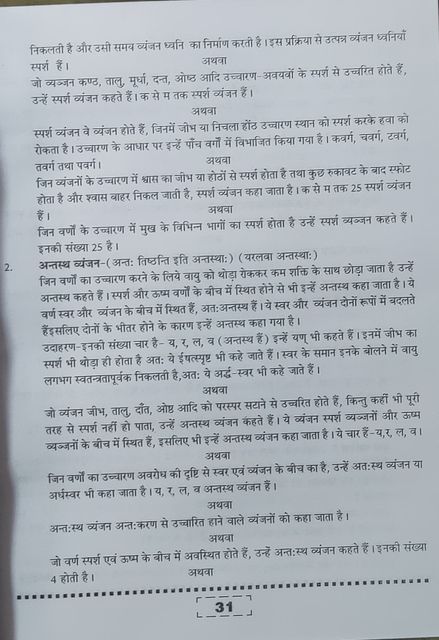 निकलती है और उसी समय व्यंजन ध्वनि का निर्माण करती है। इस प्रक्रिया से उत्पन्न व्यंजन ध्वनियाँ
स्पर्श हैं। अथवा
जो व्यञ्जन कण्ठ, तालु, मूर्धा, दन्त, ओष्ठ आदि उच्चारण-अवयवों के स्पर्श से उच्चरित होते हैं,
उन्हें स्पर्श व्यंजन कहते हैं। क से म तक स्पर्श व्यंजन हैं।
अथवा
स्पर्श व्यंजन वे व्यंजन होते हैं, जिनमें जीभ या निचला होंठ उच्चारण स्थान को स्पर्श करके हवा को
रोकता है। उच्चारण के आधार पर इन्हें पाँच वर्गों में विभाजित किया गया है। कवर्ग, चवर्ग, टवर्ग,
तवर्ग तथा पवर्ग। अथवा
जिन व्यंजनों के उच्चारण में श्वास का जीभ या होठों से स्पर्श होता है तथा कुछ रुकावट के बाद स्फोट
होता है और श्वास बाहर निकल जाती है, स्पर्श व्यंजन कहा जाता है। क से म तक 25 स्पर्श व्यंजन
हैं। अथवा
जिन वर्णों के उच्चारण में मुख के विभिन्न भागों का स्पर्श होता है उन्हें स्पर्श व्यञ्जन कहते हैं।
इनकी संख्या 25 है।
2. अन्तस्थ व्यंजन-(अन्त: तिष्ठन्ति इति अन्तस्था:) (यरलवा अन्तस्था:)
जिन वर्णों का उच्चारण करने के लिये वायु को थोड़ा रोककर कम शक्ति के साथ छोड़ा जाता है उन्हें
अन्तस्थ कहते हैं। स्पर्श और ऊष्म वर्णों के बीच में स्थित होने से भी इन्हें अन्तस्थ कहा जाता है। ये
वर्ण स्वर और व्यंजन के बीच में स्थित हैं, अत:अन्तस्थ हैं। ये स्वर और व्यंजन दोनों रूपों में बदलते
हैंइसलिए दोनों के भीतर होने के कारण इन्हें अन्तस्थ कहा गया है।
उदाहरण-इनकी संख्या चार है- य, र, ल, व (अन्तस्थ हैं) इन्हें यण् भी कहते हैं। इनमें जीभ का
स्पर्श भी थोड़ा ही होता है अत: ये ईषत्स्पृष्ट भी कहे जाते हैं। स्वर के समान इनके बोलने में वायु
लगभग स्वतन्त्रतापूर्वक निकलती है,अत: ये अर्द्ध-स्वर भी कहे जाते हैं।
अथवा
जो व्यंजन जीभ, तालु, दाँत, ओष्ठ आदि को परस्पर सटाने से उच्चरित होते हैं, किन्तु कहीं भी पूरी
तरह से स्पर्श नहीं हो पाता, उन्हें अन्तस्थ व्यंजन कहते हैं। ये व्यंजन स्पर्श व्यञ्जनों और ऊष्म
व्यञ्जनों के बीच में स्थित हैं, इसलिए भी इन्हें अन्तस्थ व्यंजन कहा जाता है। ये चार हैं-य,र, ल, व।
अथवा
जिन वर्णों का उच्चारण अवरोध की दृष्टि से स्वर एवं व्यंजन के बीच का है, उन्हें अत:स्थ व्यंजन या
अर्धस्वर भी कहा जाता है। य, र, ल, व अन्तस्थ व्यंजन हैं।
अथवा
अन्त:स्थ व्यंजन अन्त:करण से उच्चारित होने वाले व्यंजनों को कहा जाता है।
अथवा
जो वर्ण स्पर्श एवं ऊष्म के बीच में अवस्थित होते हैं, उन्हें अन्त:स्थ व्यंजन कहते हैं। इनकी संख्या
4 होती है। अथवा
31